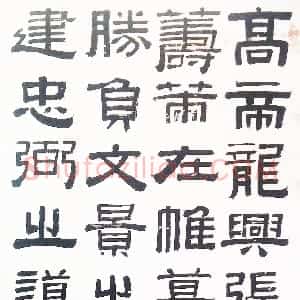 高帝龍興張
籌策在帷幕
勝負文景之
建忠弼之道